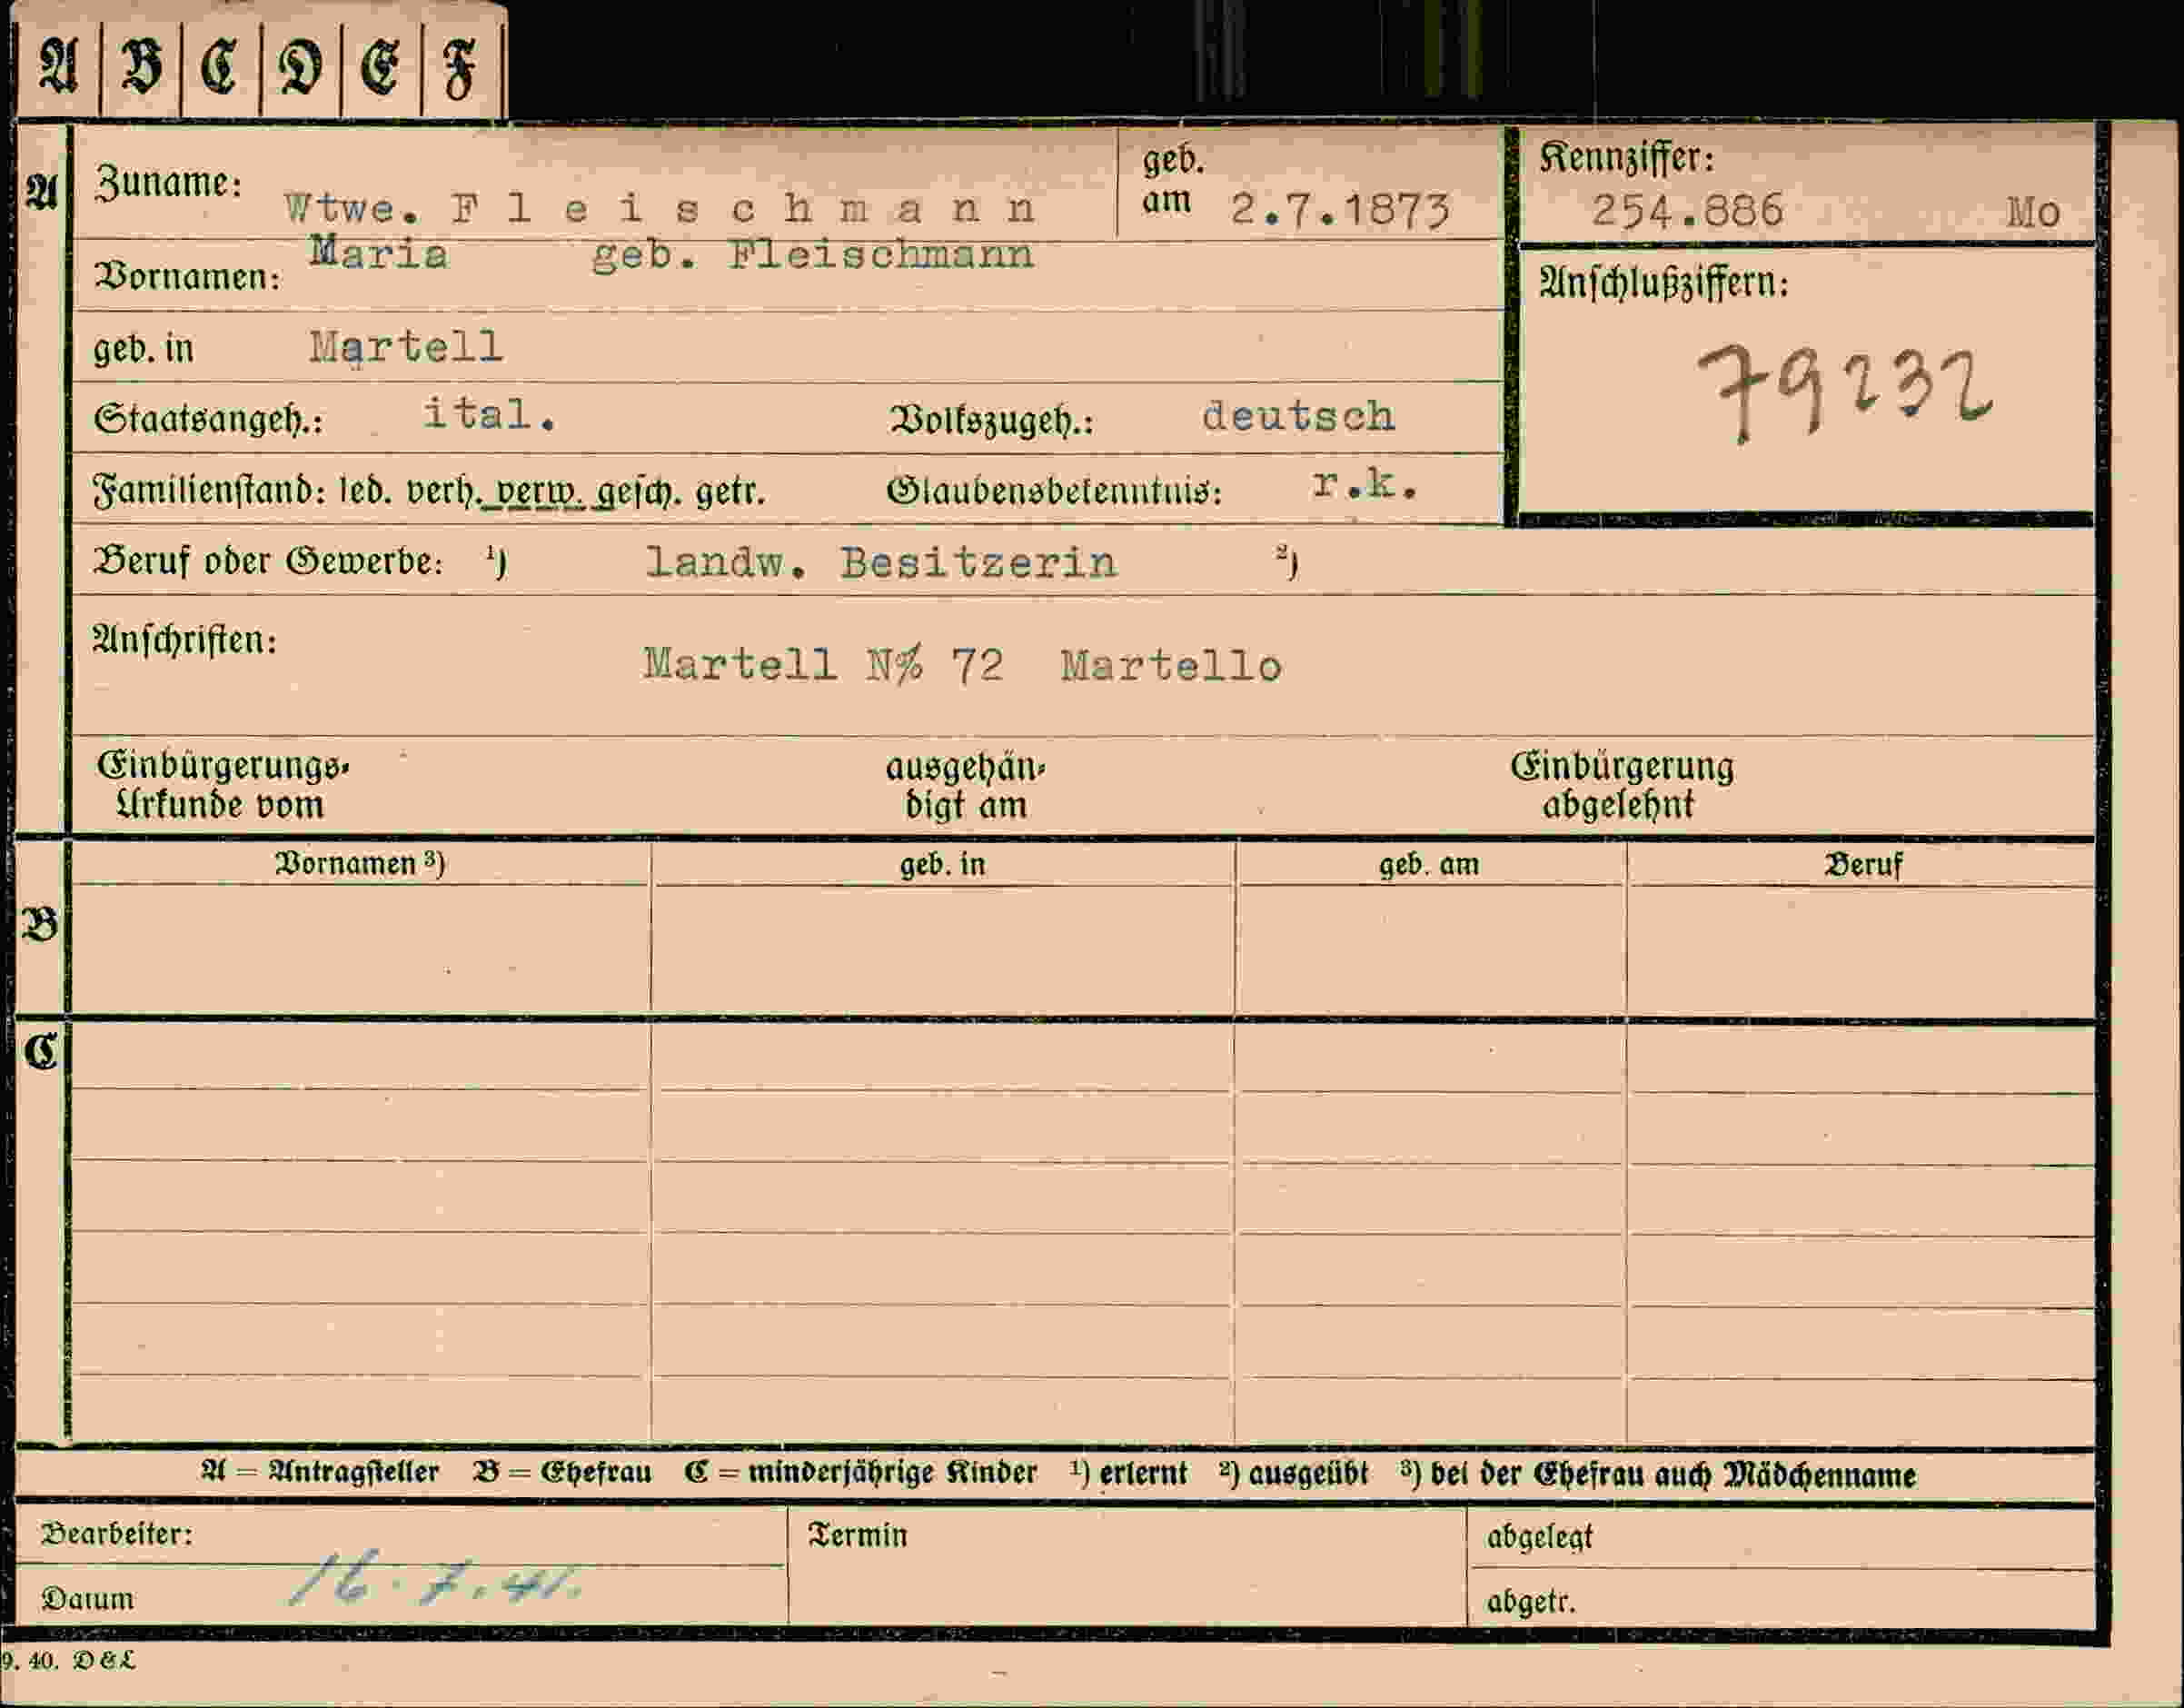 A B C D E F
A Zuname: Wtwe. F l e i s c h m a n n geb. am 2.7.1873 Kennziffer: 254.886 Mo
Vornamen: Maria geb. Fleischmann
Anschlußziffern: 79232
geb. in Martell
Staatsangeh.: ital. Volkszugeh.: deutsch
Familienstand: led. verh. verw. gesch. getr. Glaubensbekenntnis: r.k.
Beruf oder Gewerbe: ¹) landw. Besitzerin ²)
Anschriften:
Martell N% 72 Martello
Einbürgerungs- ausgehän- Einbürgerung
Urkunde vom digt am abgelehnt
Vornamen ³) geb. in geb. am Beruf
B
C
A = Antragsteller B = Ehefrau C = minderjährige Kinder ¹) erlernt ²) ausgeübt ³) bei der Ehefrau auch Mädchenname
Bearbeiter: Termin abgelegt
Datum 16.7.41. abgetr.
9. 40. D & L